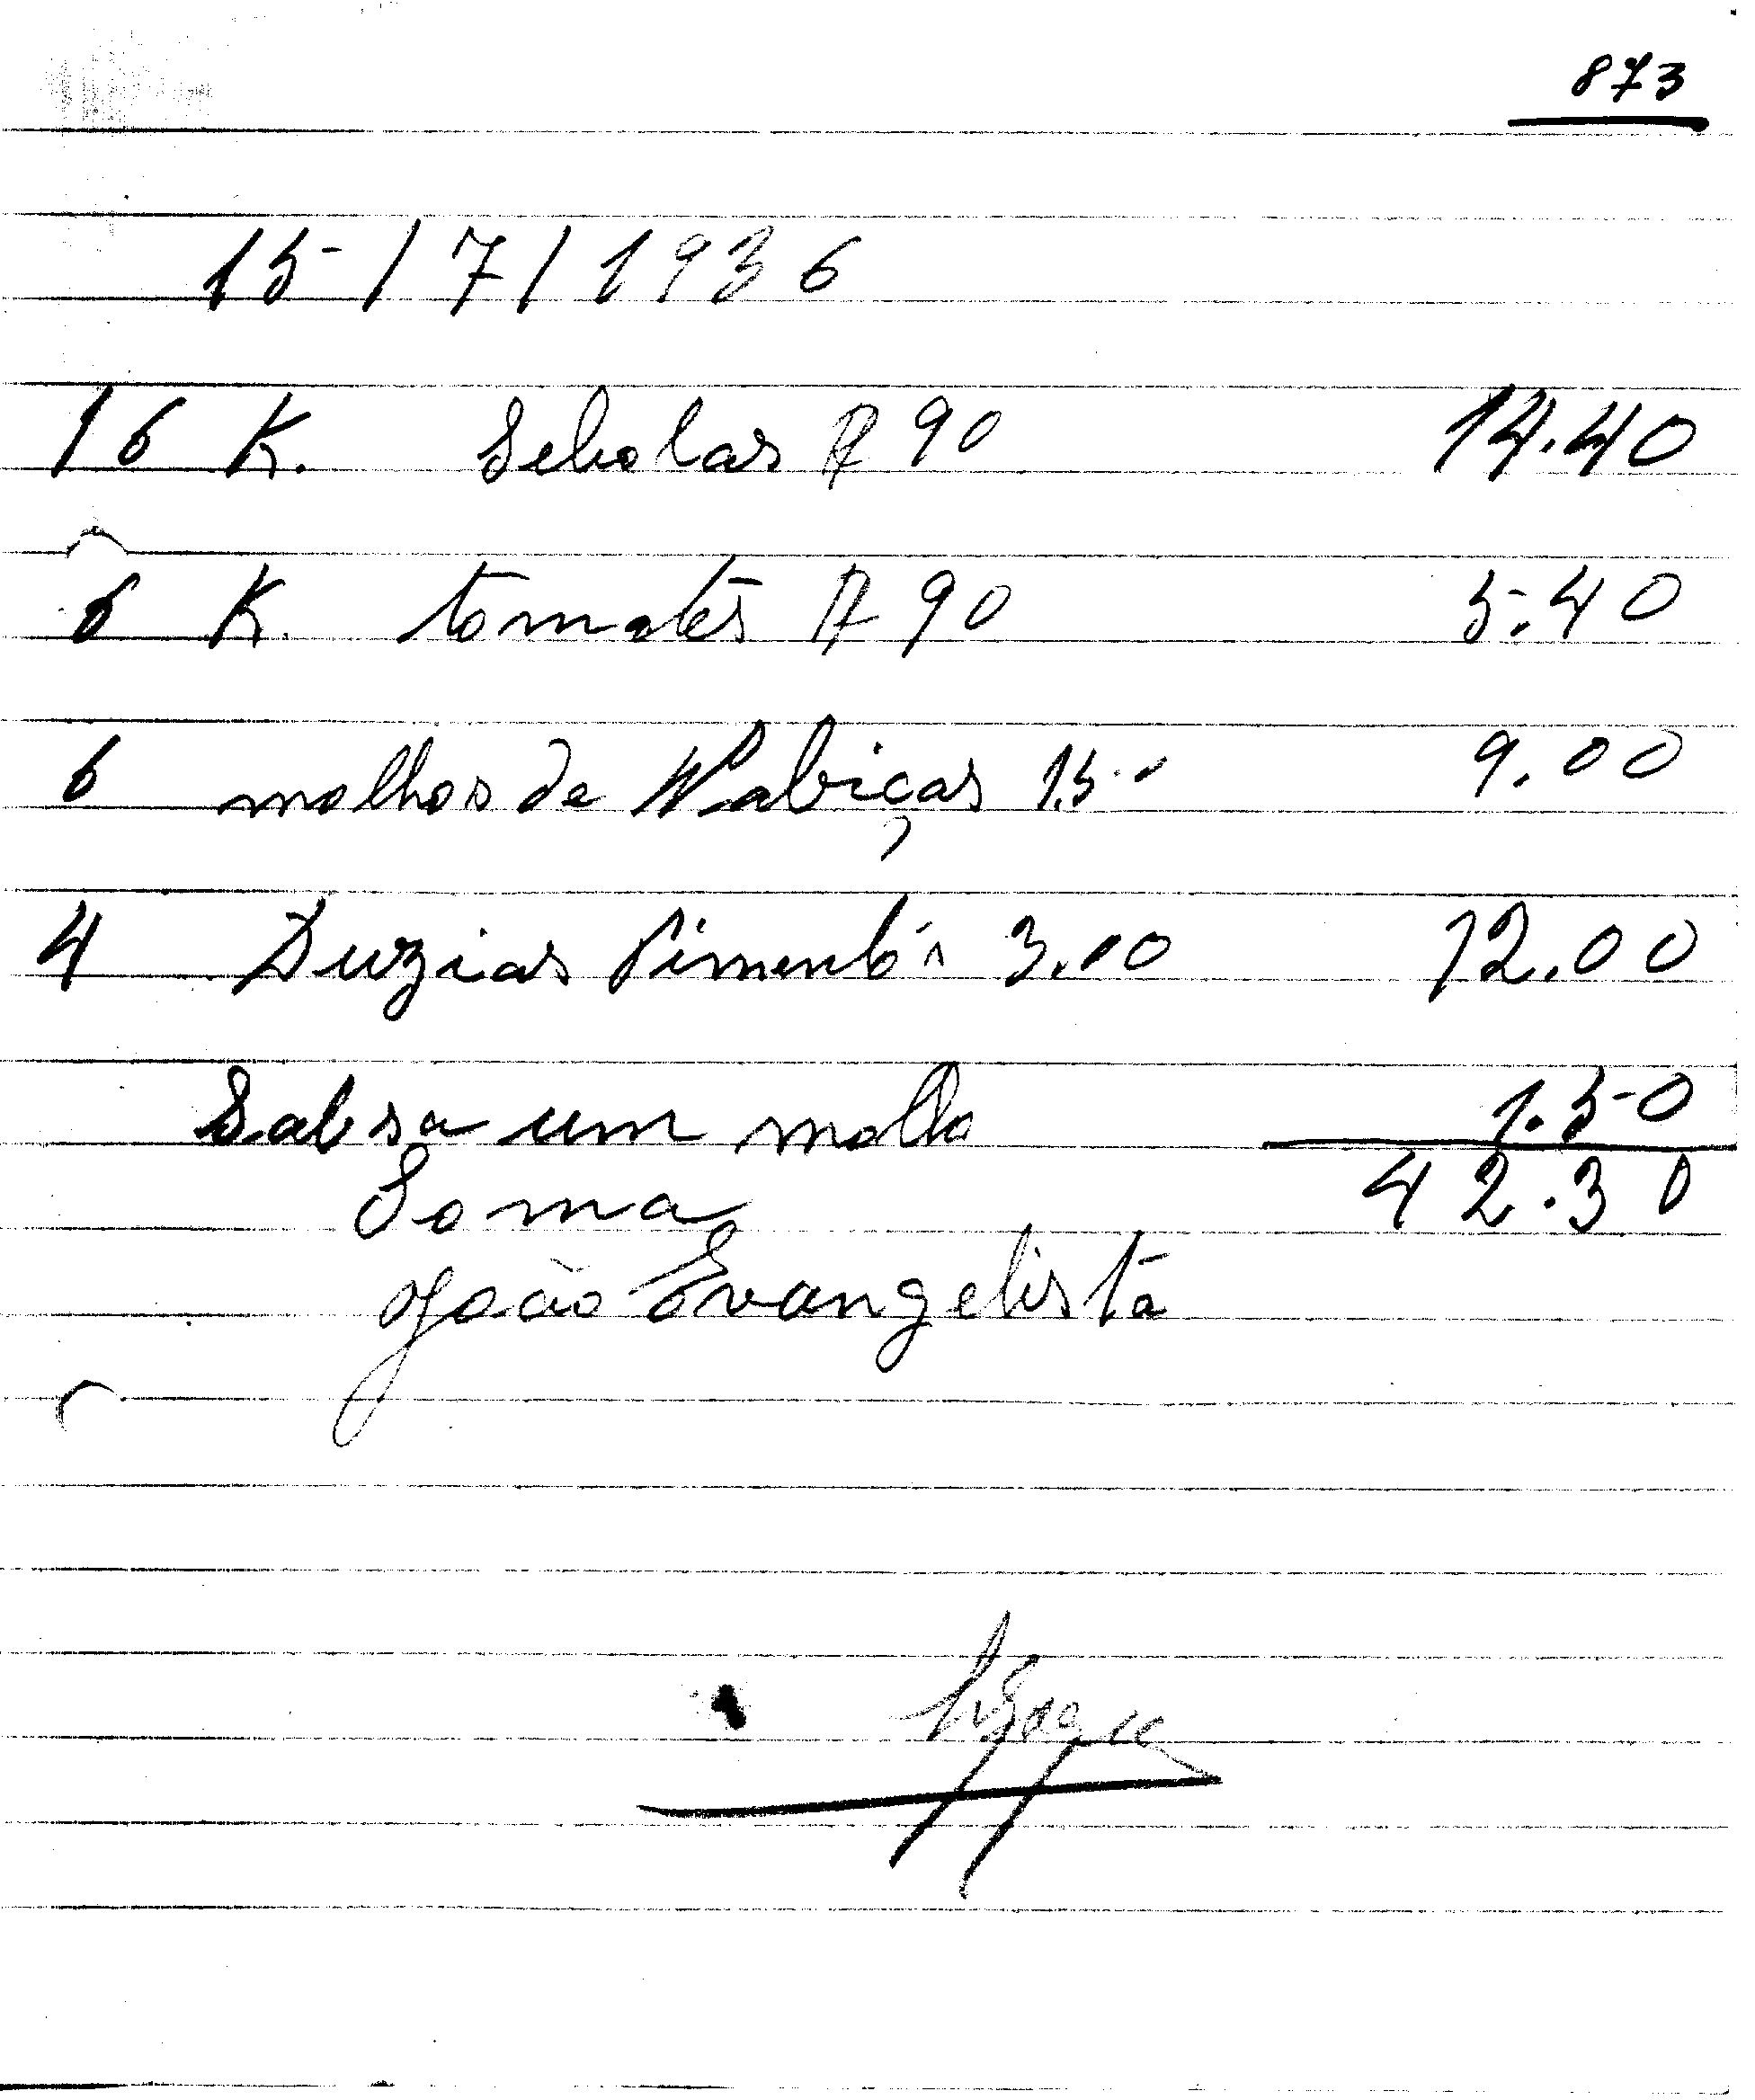 873
15/7/1936
16 K. Sebolas A 90 14.40
6 K. tomates A 90 5.40
6 molhos de Nabiças 1.50 9.00
4 Duzias Pimentos 3.00 12.00
Salsa um molho 1.50
Soma 42.30
João Evangelista